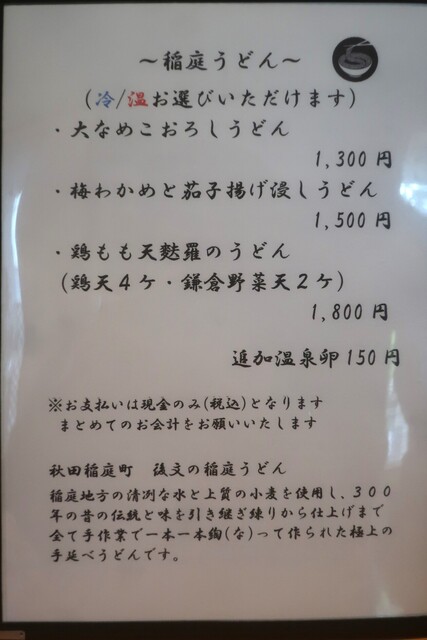 ～稲庭うどん～
(冷/温お選びいただけます)
・大なめこおろしうどん
1,300 円
・梅わかめと茄子揚げ浸しうどん
1,500 円
・鶏もも天麩羅のうどん
(鶏天4ケ・鎌倉野菜天2ケ)
1,800 円
追加温泉卵150円
※お支払いは現金のみ(税込)となります
まとめてのお会計をお願いいたします
秋田稲庭町 後文の稲庭うどん
稲庭地方の清冽な水と上質の小麦を使用し、300
年の昔の伝統と味を引き継ぎ練りから仕上げまで
全て手作業で一本一本綯(な)って作られた極上の
手延べうどんです。